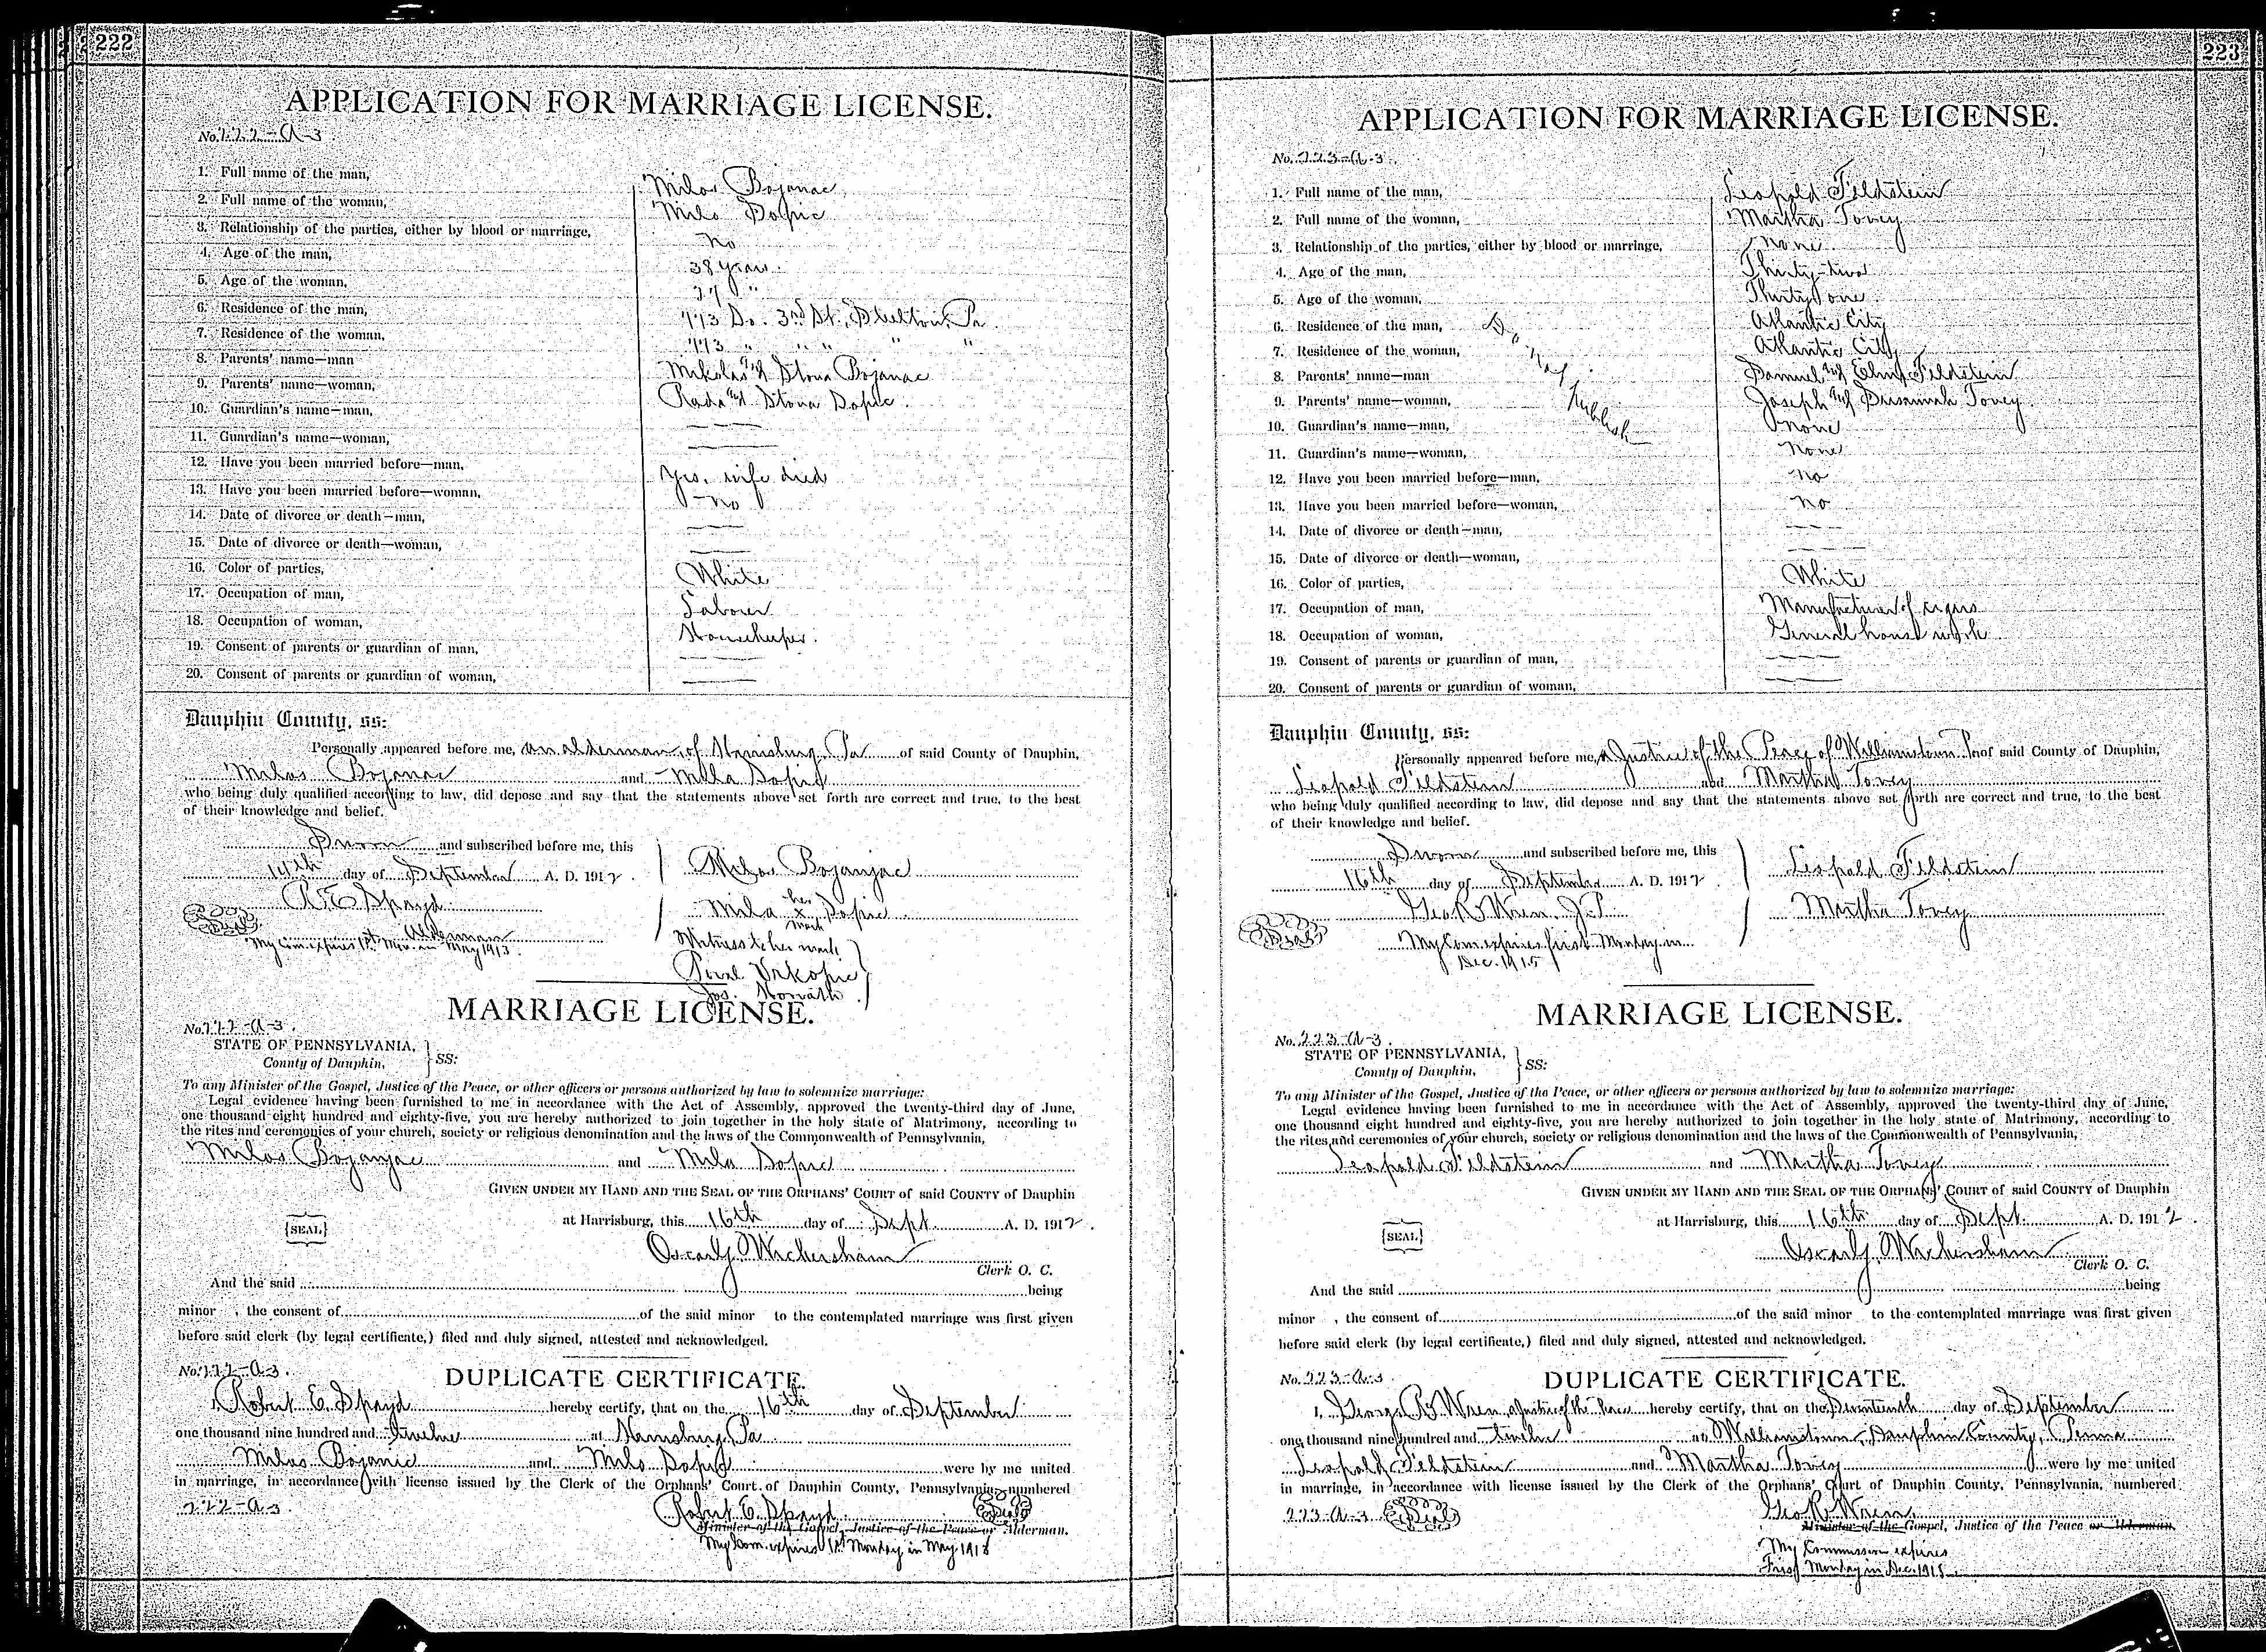 222
APPLICATION FOR MARRIAGE LICENSE.
No. 222-A-3
1. Full name of the man, Milos Bojanac
2. Full name of the woman, Mila Dopic
3. Relationship of the parties, either by blood or marriage, No
4. Age of the man, 38 years
5. Age of the woman, "
6. Residence of the man, So. 3rd St., Steelton, Pa.
7. Residence of the woman, " " " " "
8. Parents' name—man Mikolas and Stona Bojanac
9. Parents' name—woman, Rada and Stona Dopic.
10. Guardian's name—man,
11. Guardian's name—woman,
12. Have you been married before—man, Yes, wife died
13. Have you been married before—woman, No
14. Date of divorce or death—man,
15. Date of divorce or death—woman,
16. Color of parties, White
17. Occupation of man, Laborer
18. Occupation of woman, Housekeeper.
19. Consent of parents or guardian of man,
20. Consent of parents or guardian of woman,
Dauphin County, ss:
Personally appeared before me, an alderman of Harrisburg, Pa of said County of Dauphin,
Milos Bojanac and Mila Dopic
who being duly qualified according to law, did depose and say that the statements above set forth are correct and true, to the best
of their knowledge and belief.
Sworn and subscribed before me, this
14th day of September A. D. 1912.
R. E. Spayd
Alderman
Seal
My Com. expires 1st Mon. in May 1913.
Milos Bojanjac
Mila her x mark Dopic
Witness to her mark
Jos. Horvath
MARRIAGE LICENSE.
No. 222-A-3.
STATE OF PENNSYLVANIA,
County of Dauphin, } SS:
To any Minister of the Gospel, Justice of the Peace, or other officers or persons authorized by law to solemnize marriage:
Legal evidence having been furnished to me in accordance with the Act of Assembly, approved the twenty-third day of June,
one thousand eight hundred and eighty-five, you are hereby authorized to join together in the holy state of Matrimony, according to
the rites and ceremonies of your church, society or religious denomination and the laws of the Commonwealth of Pennsylvania,
Milos Bojanjac and Mila Dopic
GIVEN UNDER MY HAND AND THE SEAL OF THE ORPHANS' COURT of said COUNTY of Dauphin
{SEAL} at Harrisburg, this 16th day of Sept. A. D. 1912.
Oscar J. Wickersham
Clerk O. C.
And the said being
minor , the consent of of the said minor to the contemplated marriage was first given
before said clerk (by legal certificate,) filed and duly signed, attested and acknowledged.
No. 222-A-3.
DUPLICATE CERTIFICATE.
I, Robert E. Spayd hereby certify, that on the 16th day of September
one thousand nine hundred and twelve at Harrisburg, Pa
Milos Bojanic and Mila Dopic were by me united
in marriage, in accordance with license issued by the Clerk of the Orphans' Court of Dauphin County, Pennsylvania, numbered
222-A-3
Robert E. Spayd Seal
Minister of the Gospel, Justice of the Peace or Alderman.
My Com. expires 1st Monday in May 1918
223
APPLICATION FOR MARRIAGE LICENSE.
No. 223-A-3.
1. Full name of the man, Leopold Feldstein
2. Full name of the woman, Martha Tovey
3. Relationship of the parties, either by blood or marriage, None
4. Age of the man, Thirty-two
5. Age of the woman, Thirty one
6. Residence of the man, Atlantic City
7. Residence of the woman, Atlantic City
8. Parents' name—man Samuel and Feldstein
9. Parents' name—woman, Joseph and Susannah Tovey
10. Guardian's name—man, None
11. Guardian's name—woman, None
12. Have you been married before—man, No
13. Have you been married before—woman, No
14. Date of divorce or death—man,
15. Date of divorce or death—woman,
16. Color of parties, White
17. Occupation of man, Manufacturer of cigars
18. Occupation of woman, General house work
19. Consent of parents or guardian of man,
20. Consent of parents or guardian of woman,
Do not publish
Dauphin County, ss:
Personally appeared before me, a Justice of the Peace of Williamstown Pa of said County of Dauphin,
Leopold Feldstein and Martha Tovey
who being duly qualified according to law, did depose and say that the statements above set forth are correct and true, to the best
of their knowledge and belief.
Sworn and subscribed before me, this
16th day of September A. D. 1912.
Geo R Wren, J.P.
Seal
My Com. expires first Monday in
Dec. 1915
Leopold Feldstein
Martha Tovey
MARRIAGE LICENSE.
No. 223-A-3.
STATE OF PENNSYLVANIA,
County of Dauphin, } SS:
To any Minister of the Gospel, Justice of the Peace, or other officers or persons authorized by law to solemnize marriage:
Legal evidence having been furnished to me in accordance with the Act of Assembly, approved the twenty-third day of June,
one thousand eight hundred and eighty-five, you are hereby authorized to join together in the holy state of Matrimony, according to
the rites and ceremonies of your church, society or religious denomination and the laws of the Commonwealth of Pennsylvania,
Leopold Feldstein and Martha Tovey
GIVEN UNDER MY HAND AND THE SEAL OF THE ORPHANS' COURT of said COUNTY of Dauphin
{SEAL} at Harrisburg, this 16th day of Sept. A. D. 1912.
Oscar J. Wickersham
Clerk O. C.
And the said being
minor , the consent of of the said minor to the contemplated marriage was first given
before said clerk (by legal certificate,) filed and duly signed, attested and acknowledged.
No. 223-A-3
DUPLICATE CERTIFICATE.
I, George R Wren, a Justice of the Peace hereby certify, that on the Seventeenth day of September
one thousand nine hundred and twelve at Williamstown, Dauphin County, Penna
Leopold Feldstein and Martha Tovey were by me united
in marriage, in accordance with license issued by the Clerk of the Orphans' Court of Dauphin County, Pennsylvania, numbered
223-A-3 Seal
Geo R Wren
Minister of the Gospel, Justice of the Peace or Alderman.
My Commission expires
First Monday in Dec. 1915